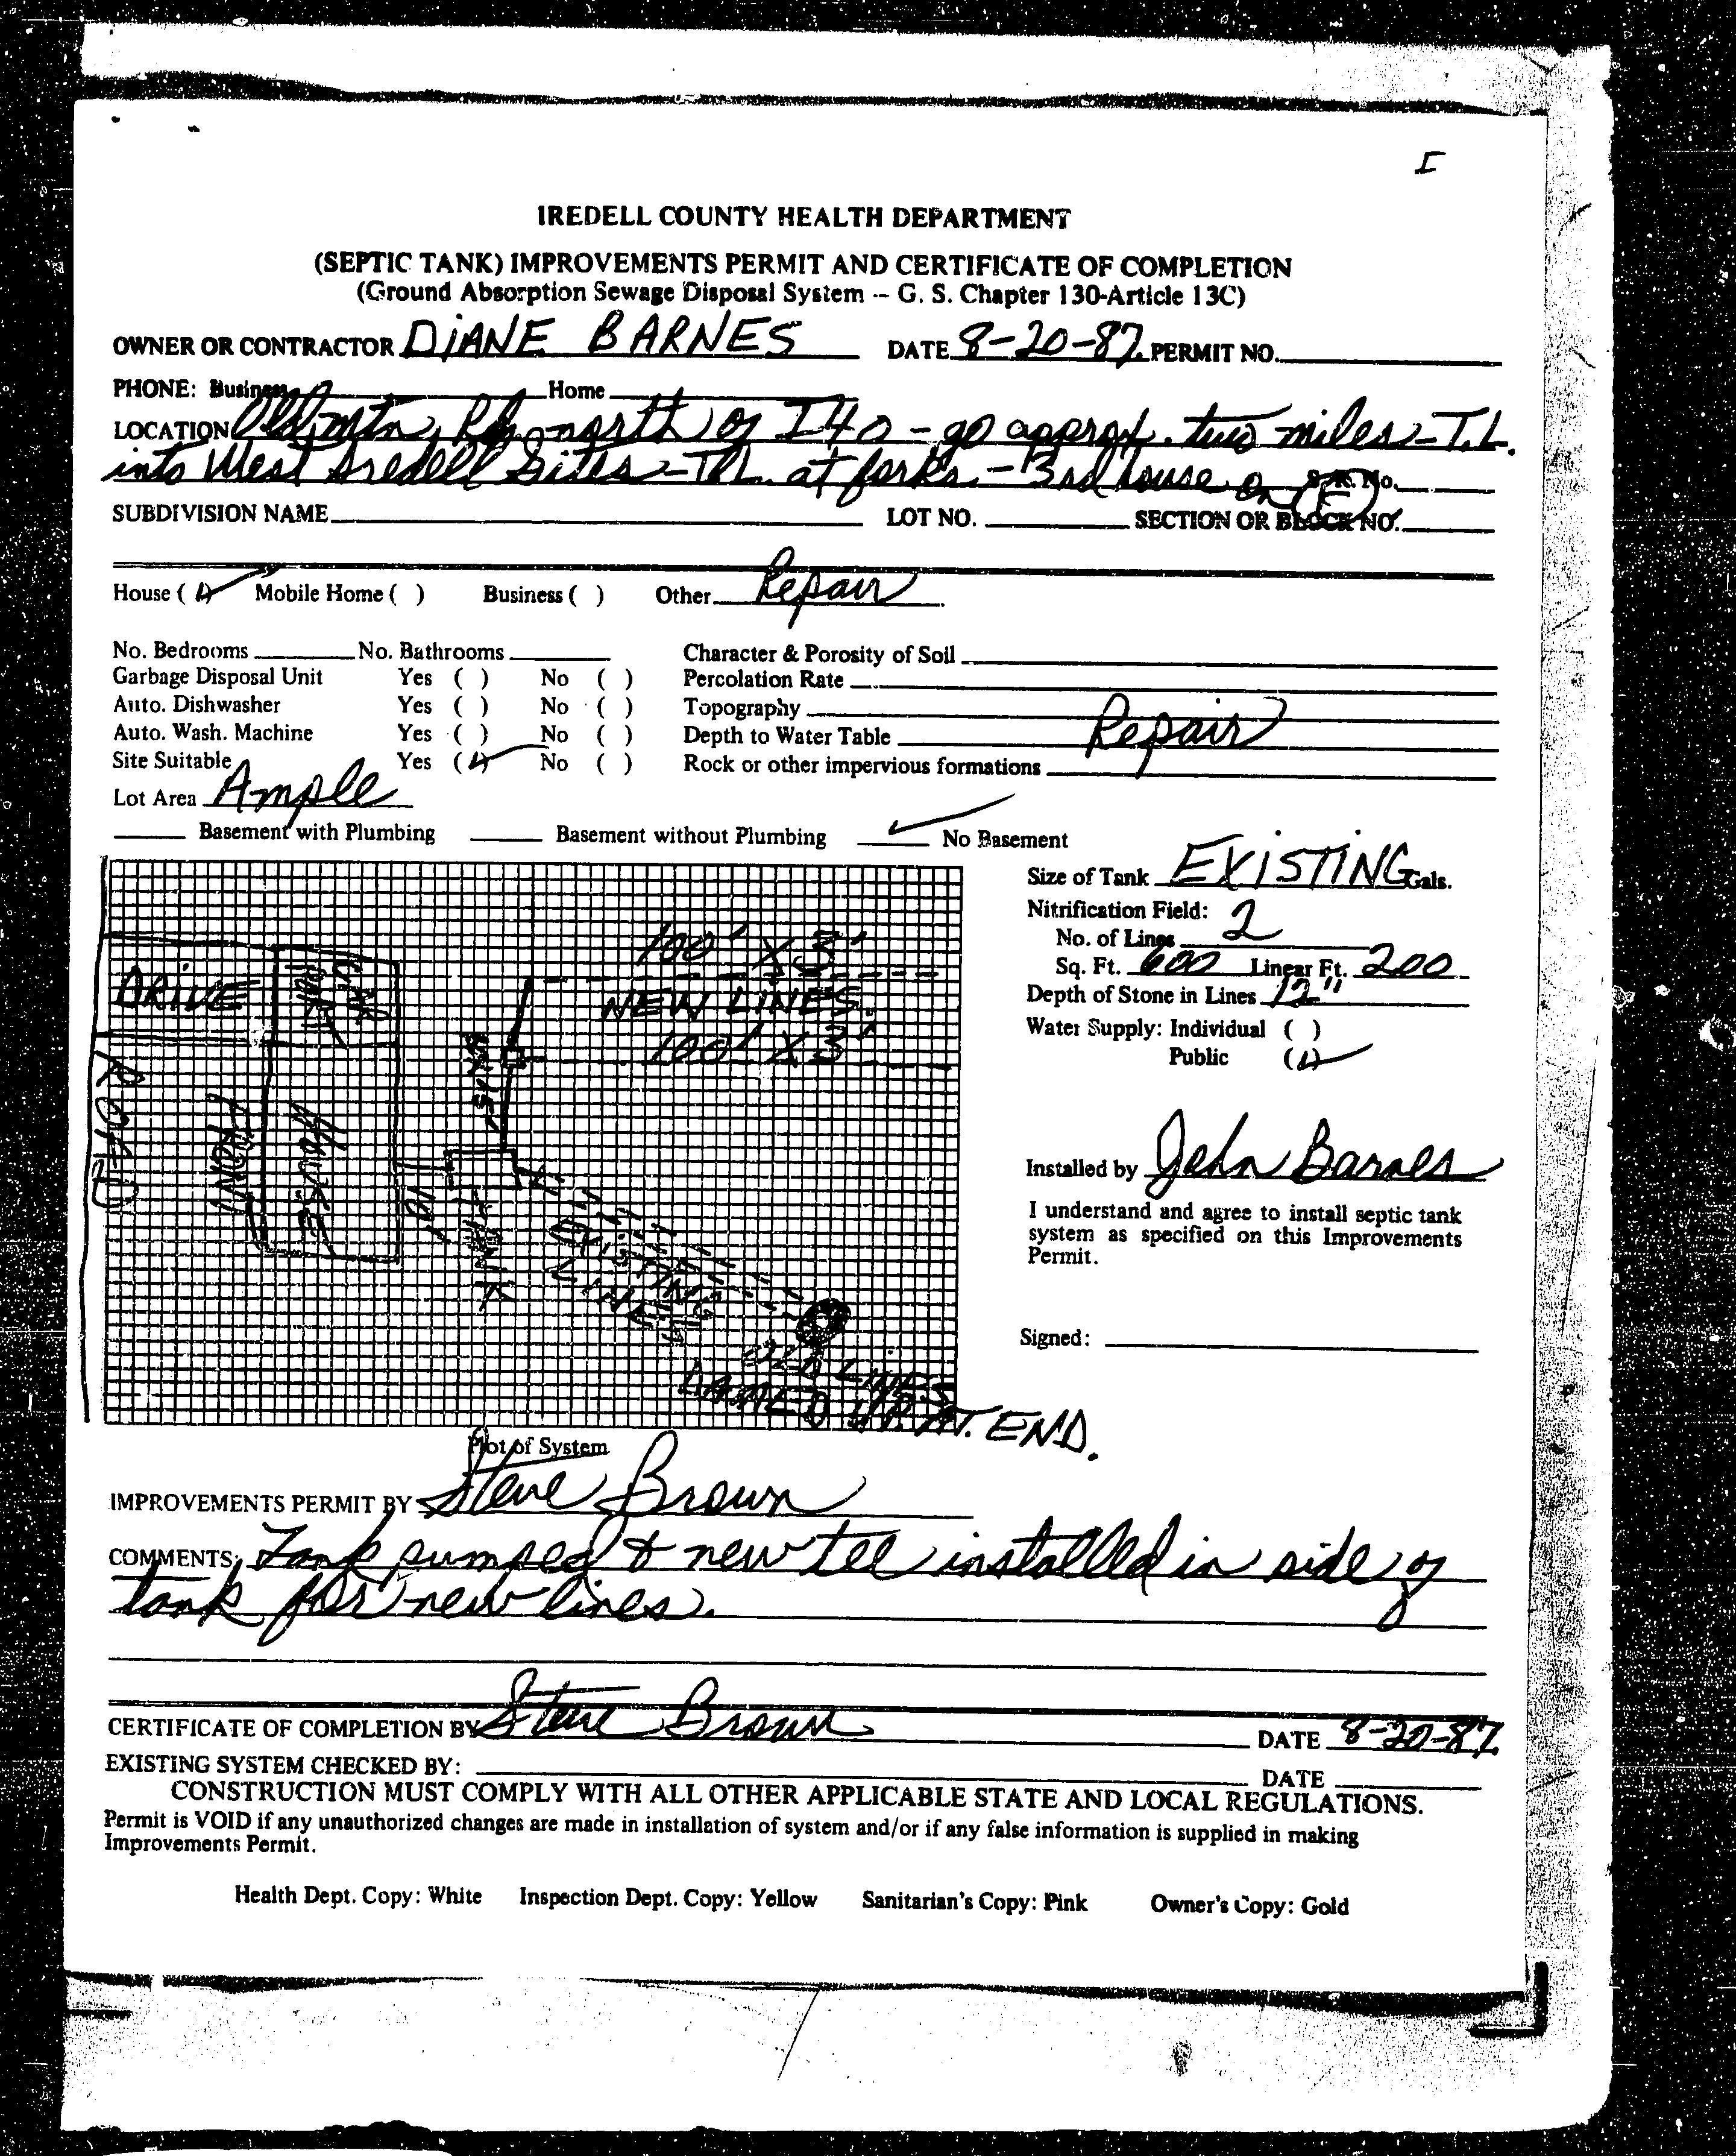 I
IREDELL COUNTY HEALTH DEPARTMENT
(SEPTIC TANK) IMPROVEMENTS PERMIT AND CERTIFICATE OF COMPLETION
(Ground Absorption Sewage Disposal System -- G. S. Chapter 130-Article 13C)
OWNER OR CONTRACTOR DiANE BARNES DATE 8-20-87 PERMIT NO.
PHONE: Business Home
LOCATION Old mtn. Rd. north of I40 - go approx. two miles - T.L.
into West Iredell Sites - at forks. - 3rd house on S.R. No.
SUBDIVISION NAME LOT NO. SECTION OR BLOCK NO.
House ( ) Mobile Home ( ) Business ( ) Other Repair
No. Bedrooms No. Bathrooms Character & Porosity of Soil
Garbage Disposal Unit Yes ( ) No ( ) Percolation Rate
Auto. Dishwasher Yes ( ) No ( ) Topography
Auto. Wash. Machine Yes ( ) No ( ) Depth to Water Table Repair
Site Suitable Yes ( ) No ( ) Rock or other impervious formations
Lot Area Ample
Basement with Plumbing Basement without Plumbing ✓ No Basement
Size of Tank EXISTING Gals.
Nitrification Field:
No. of Lines 2
Sq. Ft. 600 Linear Ft. 200
Depth of Stone in Lines 12"
Water Supply: Individual ( )
Public ( )
100' X 3'
NEW LINES
100' X 3'
DRIVE
CAR PORT
ROAD
FRONT
HOUSE
10'
TANK
EXISTING
LINES
OLD LINES
DAMED UP AT. END.
Installed by John Barnes
I understand and agree to install septic tank
system as specified on this Improvements
Permit.
Signed:
Plot of System
IMPROVEMENTS PERMIT BY Steve Brown
COMMENTS: Tank pumped & new tee installed in side of
tank for new lines.
CERTIFICATE OF COMPLETION BY Steve Brown DATE 8-20-87
EXISTING SYSTEM CHECKED BY: DATE
CONSTRUCTION MUST COMPLY WITH ALL OTHER APPLICABLE STATE AND LOCAL REGULATIONS.
Permit is VOID if any unauthorized changes are made in installation of system and/or if any false information is supplied in making
Improvements Permit.
Health Dept. Copy: White Inspection Dept. Copy: Yellow Sanitarian's Copy: Pink Owner's Copy: Gold